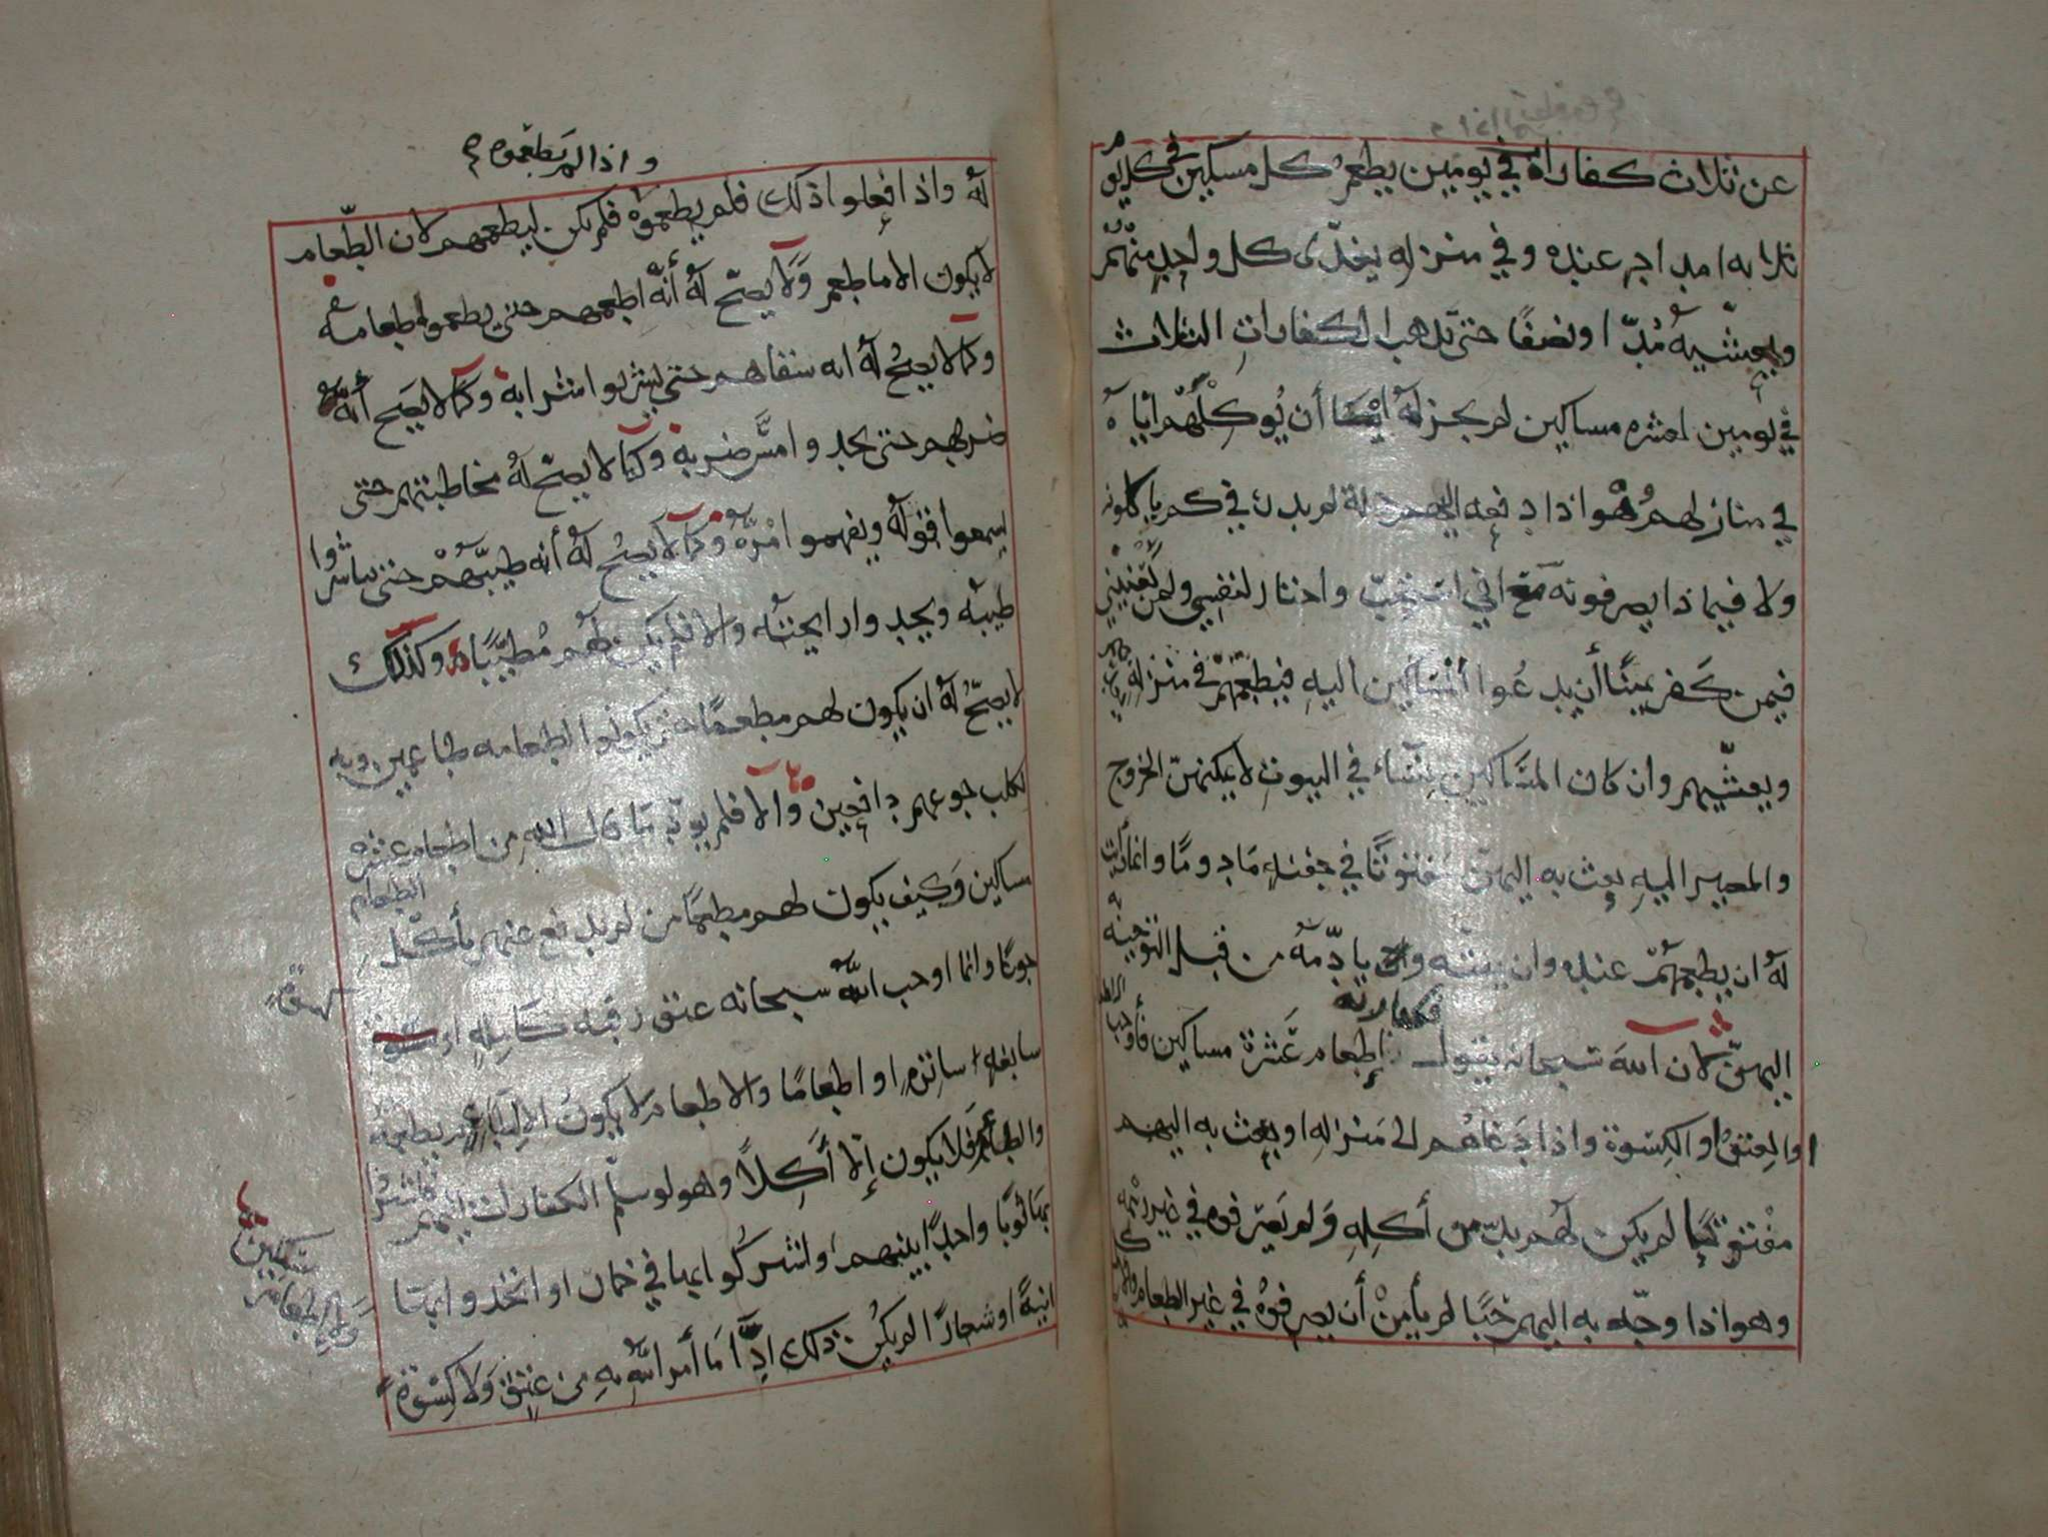 عن ثلاث كفارات في يومين يطعم كل مسكين في كل يوم
ثلاثة امداد اجر عنده وفي منزله يغدّى كل واحد منهم
ويعشّيه مُدّا ونصفًا حتى تذهب الكفارات الثلاث
في يومين لعشره مساكين لم يجز له ايضا أن يُوكِلَهُم اياه
في منازلهم وهو اذا دفعه اليهم جملة لم يدر في كم ياكلونه
ولا فيما ذا يصرفونه مع اني استحبّ واختار لنفسي ولمن
فيمن كفر يمينًا أن يدعُوا المساكين اليه فيطعمهم في منزله
ويعشّيهم وان كان المسَاكين نِسَاء في البيوت لا يمكنهنّ الخروج
والمصير اليه بعث به اليهن مفتوتًا في جفنه مَادومًا وانما
له ان يطعمهم عنده وان يفته وان يادمه من قبل التوجيه به
فكفارته
اليهنّ لان الله سبحانه يقول إطعام عَشرة مساكين فأوجب
او العتق او الكِسْوة واذا دَعاهُم الى منزله او بعث به اليهم
مفتوتًا لم يكن لهم بدّ من أكله ولم يَصرفوه في غير
وهو اذا وجّه به اليهم حَبًا لم يأمنْ أن يصرفوهُ في غير الطعام
واذا لم يطعموه
له واذا فعلوا ذلك فلم يطعموه فلم يكن ليطعمهم لان الطّعام
لا يكون الا ما طعم وَلا يصحّ له أنّه اطعمهم حتى يطعموا طعامه
وكما لا يصحُ له انه سقاهم حتى يشربوا شرابه وكما لا يصَح أنه
ضربهم حتى يجدوا مسَّ ضربه وكما لا يصحّ لهُ مخاطبتهم حتى
يسمعوا قوله ويفهموا امْرَهُ وكما لا يصحُ لهُ أنه طيبّهُمْ حتى يباشروا
طيبه ويجدوا رايحته والا فلم يكن لهُم مُطيّبًا وكذلك
لا يصحّ له ان يكون لهم مطعمًا حتى يكونوا لطعامه طاعمين وبه
لكلب جوعهم دافعين والا فلم يؤد ما قال الله من اطعام عشره
مساكين وَكيف يكون لهم مطعمًا من لم يدفع عنهم بأكل الطعام
جوعًا وانما اوجب الله سبحانه عتق رقبه كَامِلهِ او كسوة
سابغهِ ساترهِ او اطعامًا والاطعام لا يكونُ الا لطاعم يطعمهُ
والطاعم فلا يكون إلا أَكِلاً وهو لو سلم الكفارات اليهم فاشتروا
بها ثوبًا واحدًا بينهم او اشتركوا بها في خمار او اتخذوا بها
انيةً او شعارًا لم يكن ذلك اذًا مَا أمر الله به من عتق وَلا كسْوَة
مسَكين
ولا اطعام